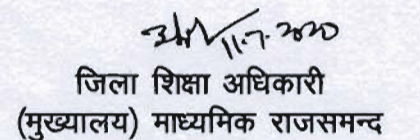 11.7.2020
जिला शिक्षा अधिकारी
(मुख्यालय) माध्यमिक राजसमन्द